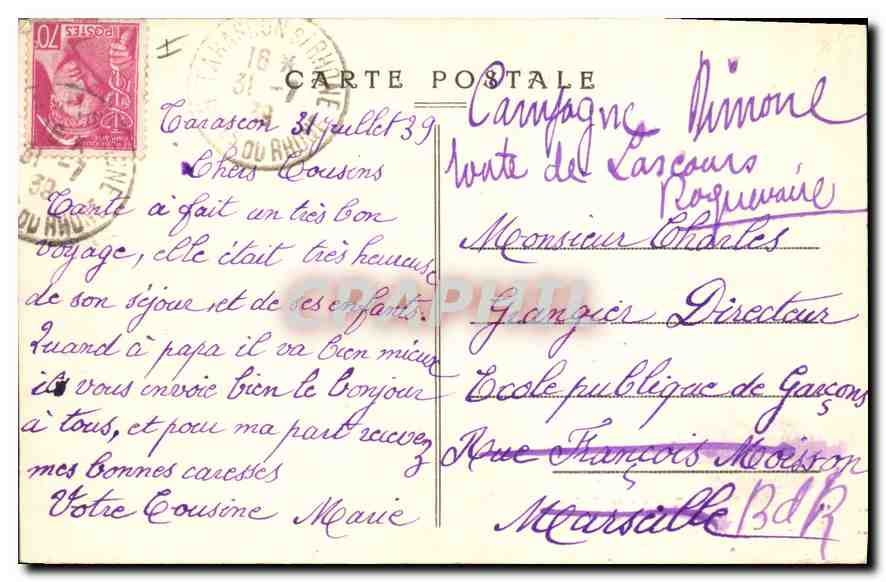 70
POSTES
TARASCON S/RHONE
18
31 -7
39
DU RHONE
CARTE POSTALE
Tarascon 31 juillet 39
Chers Cousins
Tante à fait un très bon
voyage, elle était très heureuse
de son séjour et de ses enfants.
Quand à papa il va bien mieux
il vous envoie bien le bonjour
à tous, et pour ma part recevez
mes bonnes caresses
Votre Cousine Marie
Campagne
route de Lascours
Roquevaire
Monsieur Charles
Gangier Directeur
Ecole publique de Garçons
Rue François Moisson
Marseille BdR
CPAPHIL
31 -7
39
DU RHONE